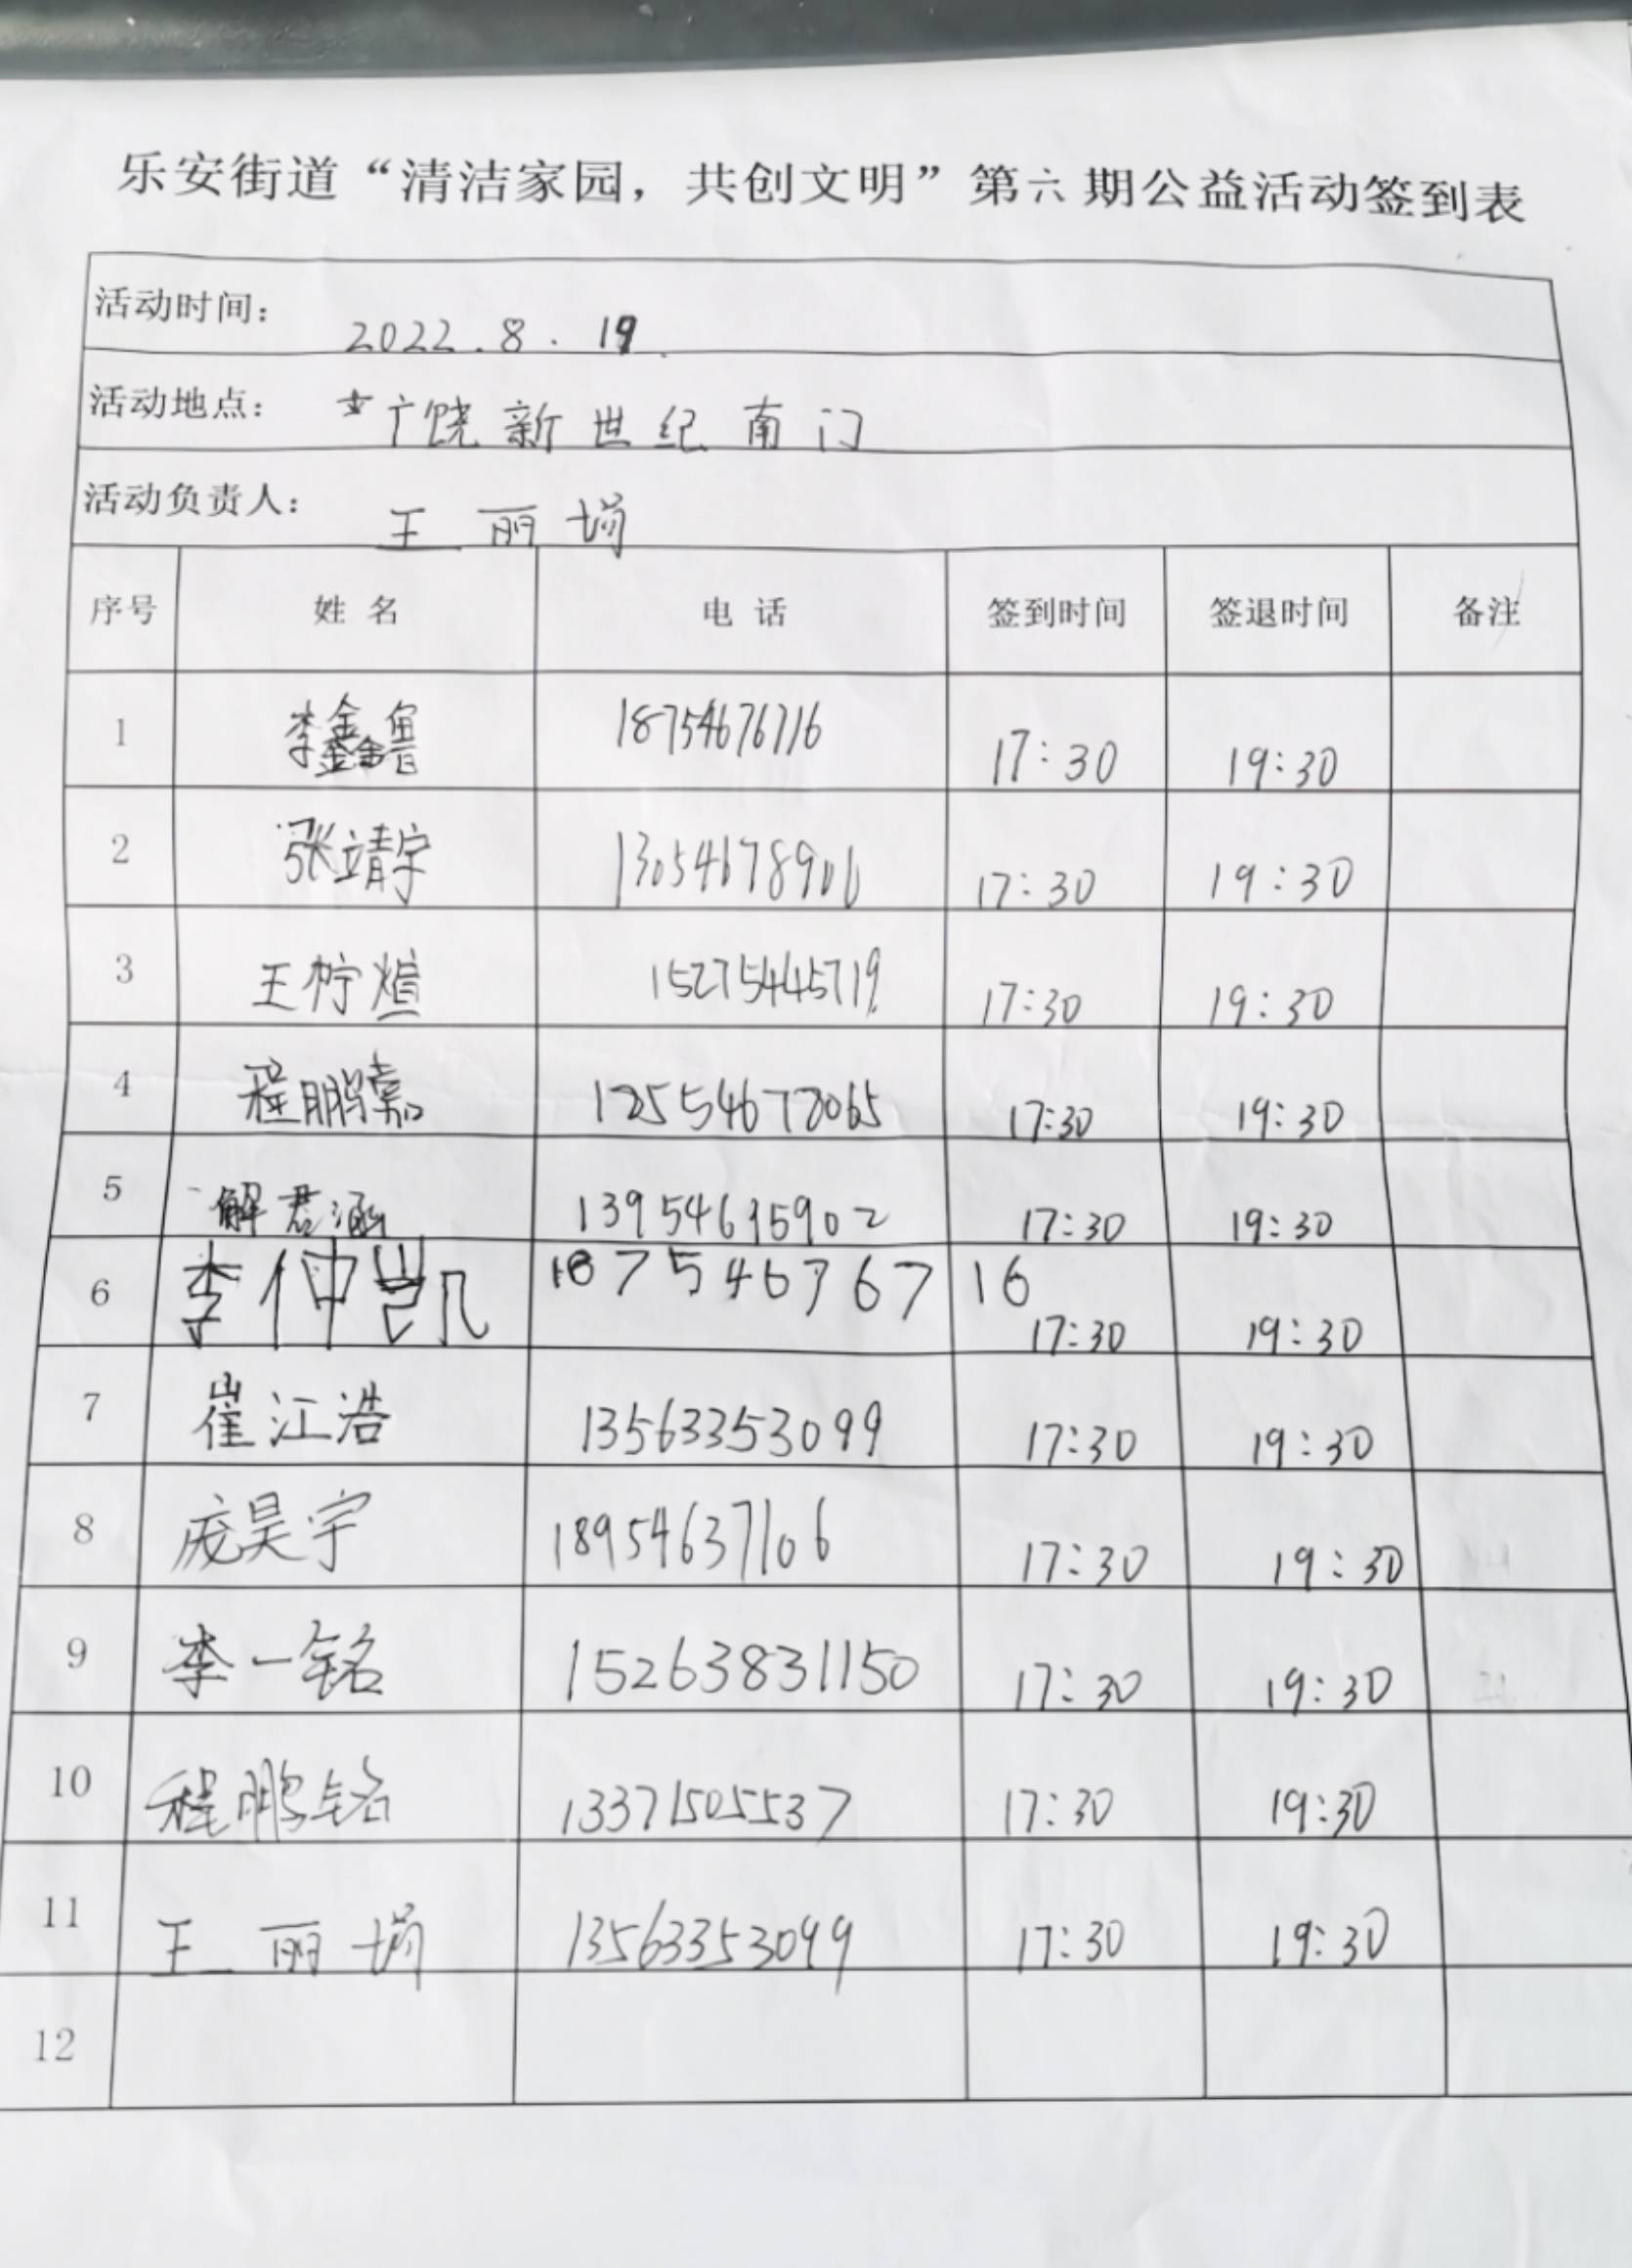 乐安街道“清洁家园，共创文明”第六期公益活动签到表
活动时间： 2022.8.19
活动地点： 广饶新世纪南门
活动负责人： 王丽娟
序号 姓名 电话 签到时间 签退时间 备注
1 李鑫鲁 18754676716 17:30 19:30
2 张靖宇 13054678906 17:30 19:30
3 王柠煊 15275445719 17:30 19:30
4 程鹏嘉 17:30 19:30
5 解君涵 13954695902 17:30 19:30
6 李仲凯 18754676716 17:30 19:30
7 崔江浩 13563353099 17:30 19:30
8 庞昊宇 18954637106 17:30 19:30
9 李一铭 15263831150 17:30 19:30
10 程鹏铭 13371505537 17:30 19:30
11 王丽娟 13563353099 17:30 19:30
12